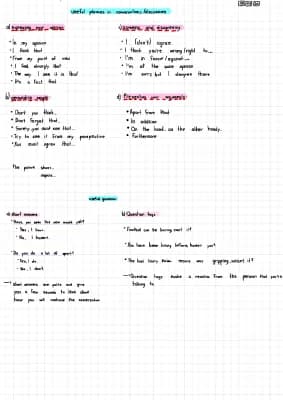 useful phrases in conversations/discussions
a) expressing your opinion
• In my opinion
• I think that
• From my point of view
• I feel strongly that
• The way I see it is that
• It's a fact that
b) convincing people
• Don't you think...
• Don't forget that...
• Surely you must see that...
• Try to see it from my perspective
• You must agree that...
The point here
again...
c) agreeing and disagreeing
• I (don't) agree
• I think you're wrong/right to...
• I'm in favour/against...
• I'm of the same opinion
• I'm sorry but I disagree there
d) Presenting your arguments
• Apart from that
• In addition
• On the one hand, on the other hand.
• Furthermore
useful grammar
a) short answers
• Yes, I have.
• No, I haven't
• Do you do a lot of sport?
• Yes, I do.
• No, I don't
→ short answers are polite and give
you a few seconds to think about
how you will continue the conversation
b) Question tags
• Football can be boring can't it?
→ Question tags evoke a reaction from the person that you're
talking to